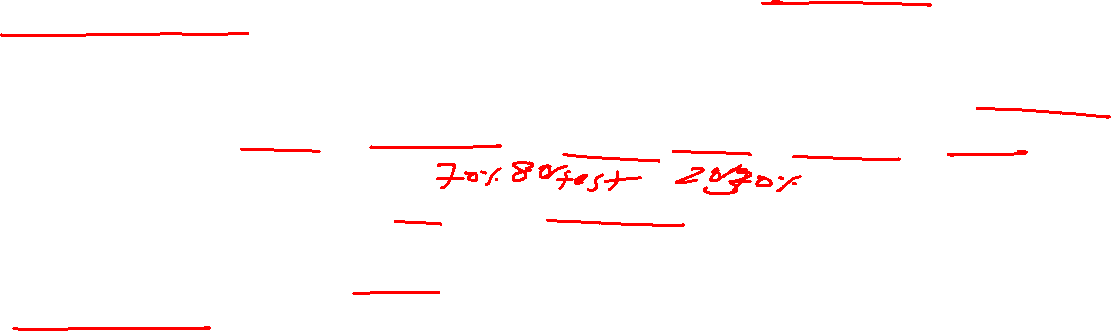 70% 80% test 20% 30%